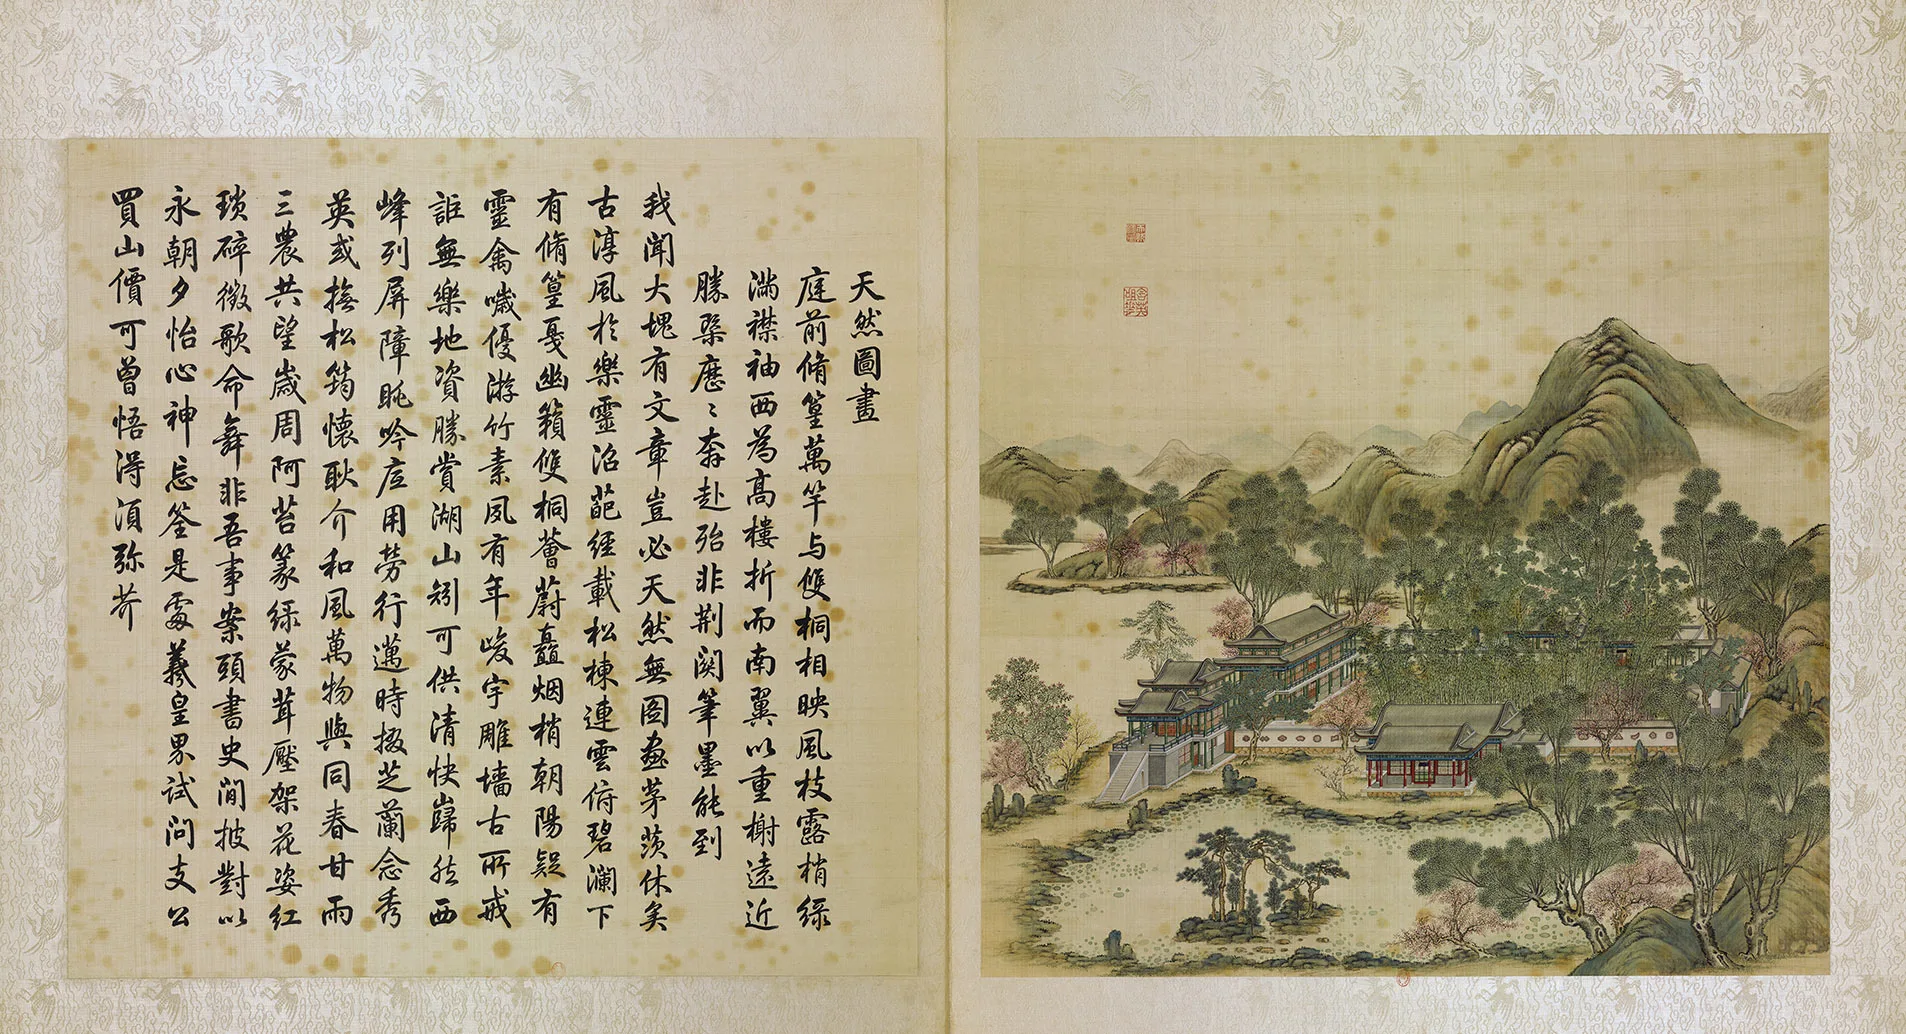 天然圖畫
庭前脩篁萬竿与雙桐相映風枝露梢綠
滿襟袖西為高樓折而南翼以重榭遠近
勝槩歷〻奔赴殆非荆関筆墨能到
我聞大塊有文章豈必天然無圖畫茅茨休矣
古淳風於樂靈沼葩經載松棟連雲俯碧瀾下
有脩篁戛幽籟雙桐薈蔚矗烟梢朝陽疑有
靈禽噦優游竹素夙有年峻宇雕墻古所戒
詎無樂地資勝賞湖山矧可供清快巋然西
峰列屏障眺吟底用勞行邁時掇芝蘭念秀
英或撫松筠懷耿介和風萬物與同春甘雨
三農共望歲周阿苔篆綠蒙茸壓架花姿紅
瑣碎徵歌命舞非吾事案頭書史閒披對以
永朝夕怡心神忘筌是處羲皇界試問支公
買山價可曾悟得湏弥芥